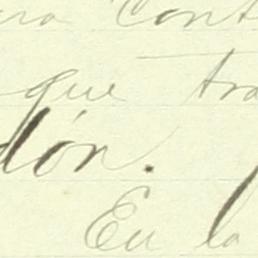 ara cont
que tra
dón.
En la